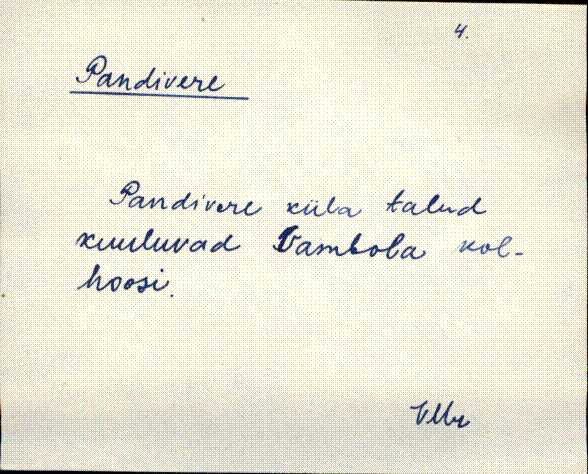 4.
Pandivere
Pandivere küla talud
kuuluvad Vambola kol-
hoosi.